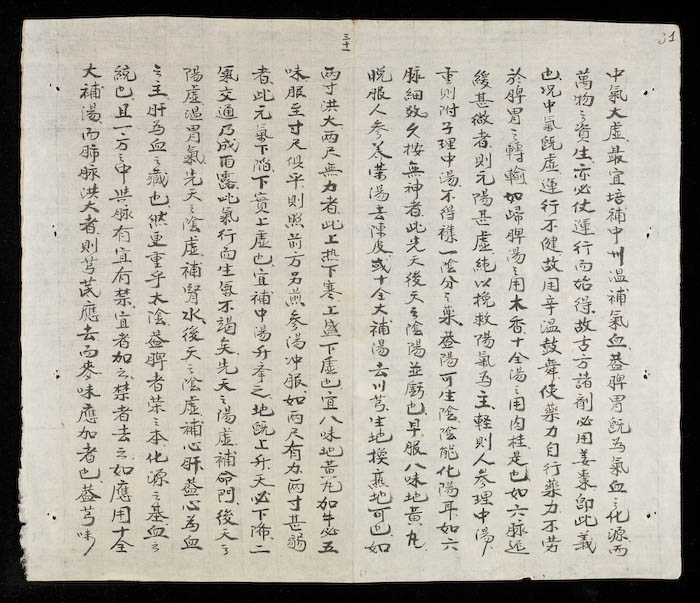 31
三十一
中氣大虛最宜培補中州溫補氣血蓋脾胃既為氣血之化源而
萬物之資生亦必仗運行而始得故古方諸劑必用姜棗即此義
也况中氣既虛運行不健故用辛溫鼓舞使藥力自行藥力不劳
於脾胃之轉輸如歸脾湯之用木香十全湯之用肉桂是也如六脉遲
緩甚微者則元陽甚虛純以挽救陽氣為主輕則人參理中湯
重則附子理中湯不得襍一陰分之藥蓋陽可生陰陰能化陽耳如六
脉細数久按無神者此先天後天之陰陽並虧也早服八味地黃丸
晚服人參养荣湯去陳皮或十全大補湯去川芎生地換熟地可也如
两寸洪大两尺無力者此上热下寒上盛下虛也宜八味地黃丸加牛必五
味服至寸尺俱平則照前方另煎參湯冲服如两尺有力两寸甚弱
者此元氣下陷下實上虛也宜補中湯升举之地既上升天必下降二
氣交通乃成雨露此氣行而生氣不竭矣先天之陽虛補命門後天之
陽虛溫胃氣先天之陰虛補腎水後天之陰虛補心肝蓋心為血
之主肝為血之藏也然更重乎太陰蓋脾者荣之本化源之基血之
統也且一方之中與脉有宜有禁宜者加之禁者去之如應用十全
大補湯而肺脉洪大者則芎芪應去而麥味應加者也蓋芎味